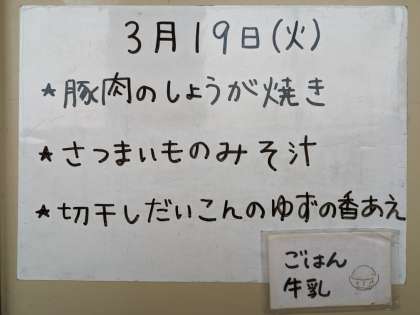 3月19日(火)
★豚肉のしょうが焼き
★さつまいものみそ汁
★切干しだいこんのゆずの香あえ
ごはん
牛乳